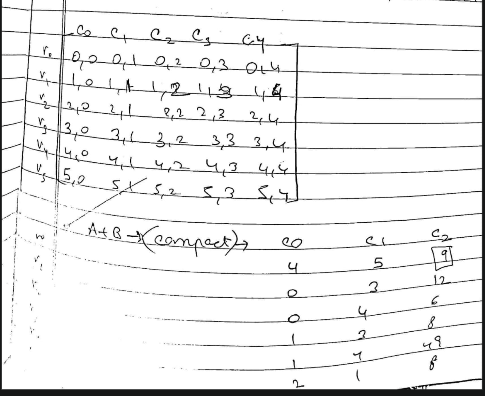 C0 C1 C2 C3 C4
r0 0,0 0,1 0,2 0,3 0,4
r1 1,0 1,1 1,2 1,3 1,4
r2 2,0 2,1 2,2 2,3 2,4
r3 3,0 3,1 3,2 3,3 3,4
r4 4,0 4,1 4,2 4,3 4,4
r5 5,0 5,1 5,2 5,3 5,4
A+B → (compact) → C0 C1 C2
4 5 9
0 3 12
0 4 6
1 3 8
1 7 49
2 1 8